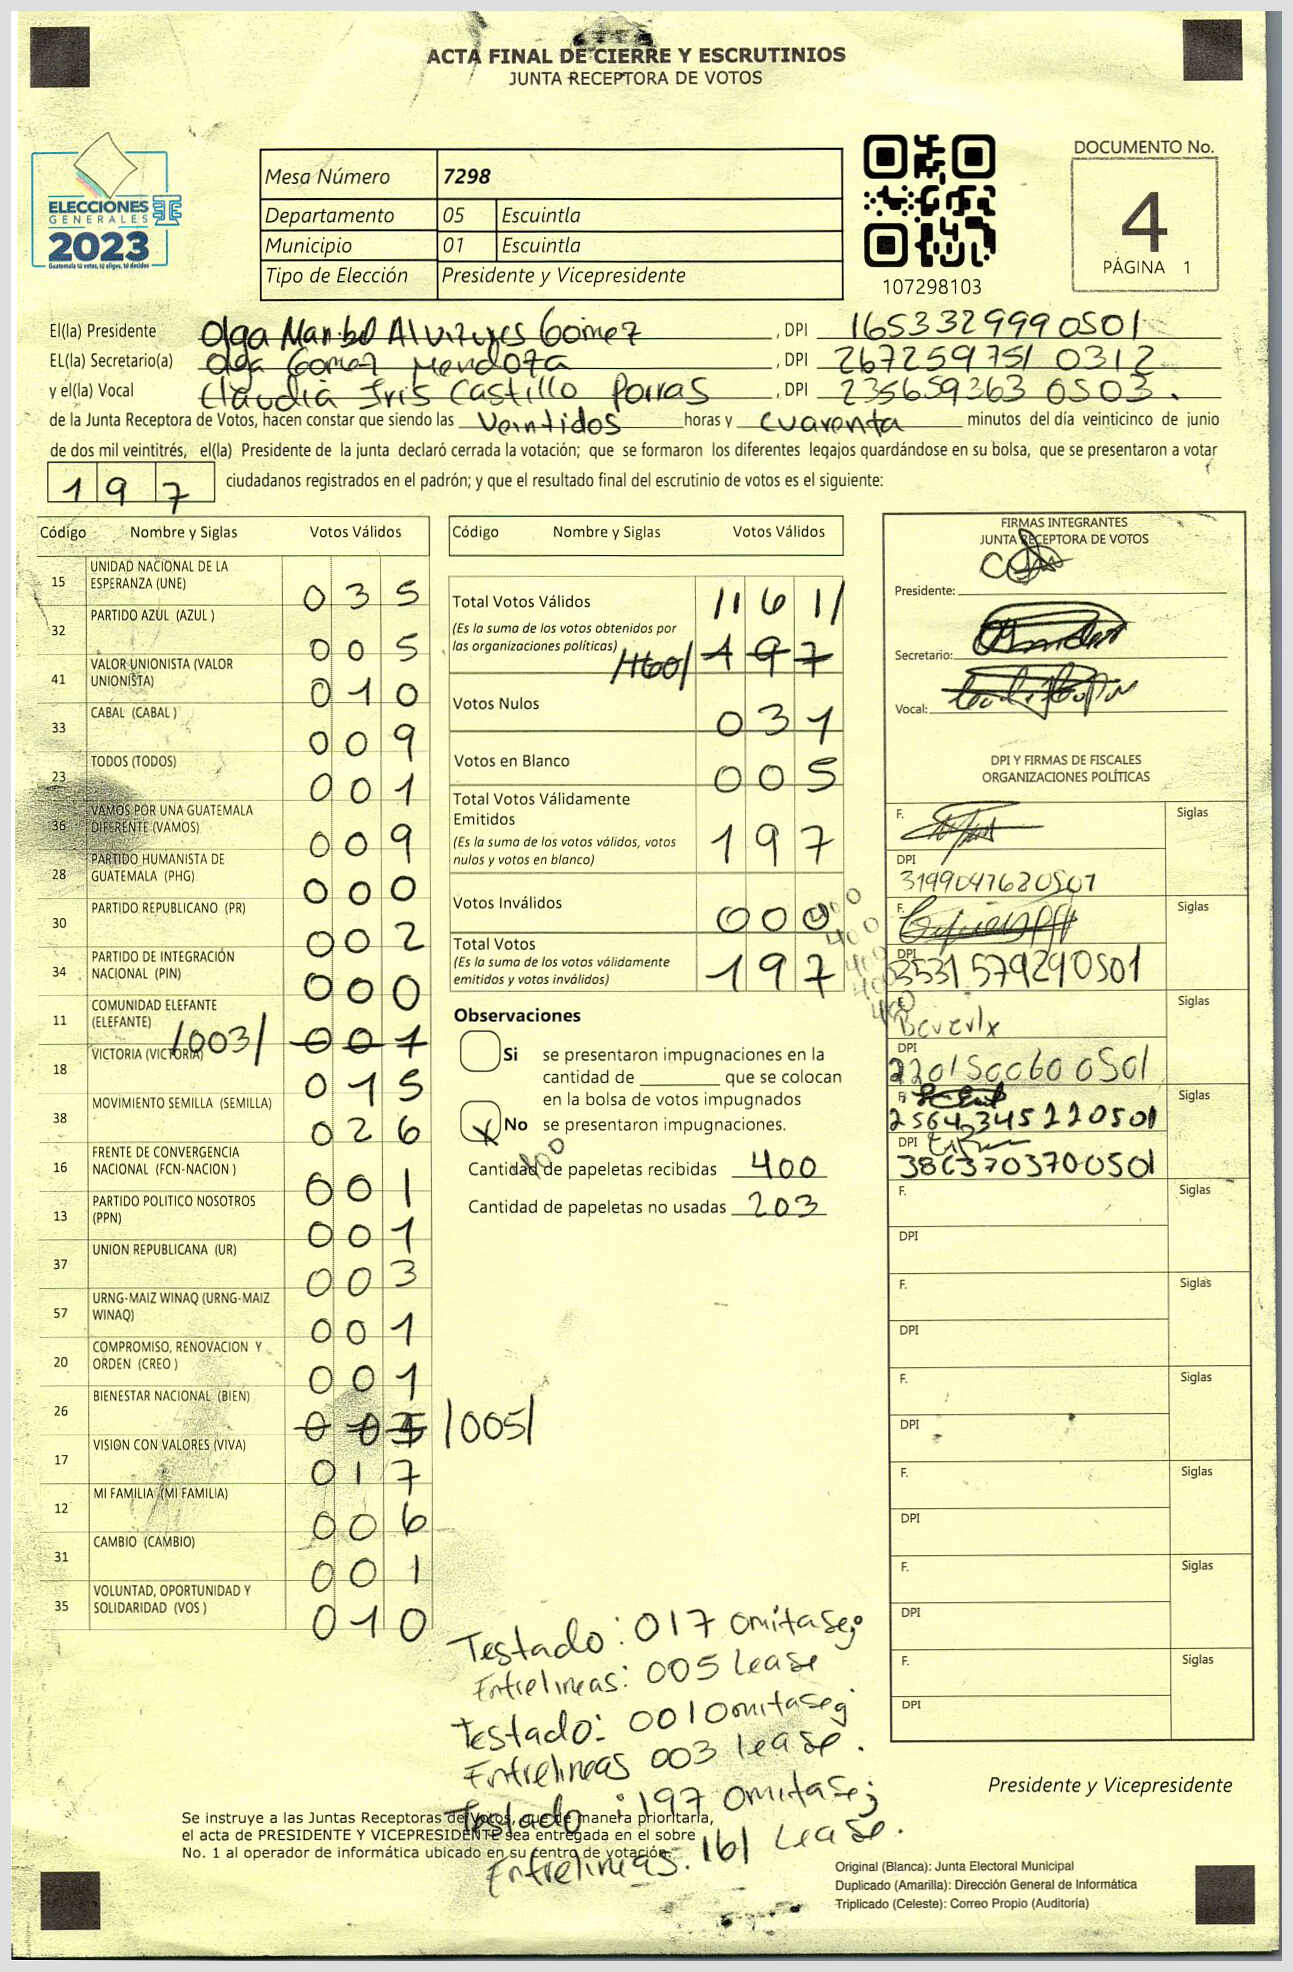 ACTA FINAL DE CIERRE Y ESCRUTINIOS
JUNTA RECEPTORA DE VOTOS
ELECCIONES
GENERALES
2023
Guatemala tú votas, tú eliges, tú decides
Mesa Número 7298
Departamento 05 Escuintla
Municipio 01 Escuintla
Tipo de Elección Presidente y Vicepresidente
107298103
DOCUMENTO No.
4
PÁGINA 1
El(la) Presidente Olga Maribel Alvizures Gómez , DPI 1653329990501
EL(la) Secretario(a) Olga Gomez Mendoza , DPI 267259751 0312
y el(la) Vocal Claudia Iris Castillo Porras , DPI 235659363 0503.
de la Junta Receptora de Votos, hacen constar que siendo las Veintidos horas y cuarenta minutos del día veinticinco de junio
de dos mil veintitrés, el(la) Presidente de la junta declaró cerrada la votación; que se formaron los diferentes legajos quardándose en su bolsa, que se presentaron a votar
197 ciudadanos registrados en el padrón; y que el resultado final del escrutinio de votos es el siguiente:
Código Nombre y Siglas Votos Válidos
15 UNIDAD NACIONAL DE LA
ESPERANZA (UNE) 035
32 PARTIDO AZUL (AZUL ) 005
41 VALOR UNIONISTA (VALOR
UNIONISTA) 010
33 CABAL (CABAL ) 009
23 TODOS (TODOS) 001
36 VAMOS POR UNA GUATEMALA
DIFERENTE (VAMOS) 009
28 PARTIDO HUMANISTA DE
GUATEMALA (PHG) 000
30 PARTIDO REPUBLICANO (PR) 002
34 PARTIDO DE INTEGRACIÓN
NACIONAL (PIN) 000
11 COMUNIDAD ELEFANTE
(ELEFANTE) /003/ 001
18 VICTORIA (VICTORIA) 015
38 MOVIMIENTO SEMILLA (SEMILLA) 026
16 FRENTE DE CONVERGENCIA
NACIONAL (FCN-NACION ) 001
13 PARTIDO POLITICO NOSOTROS
(PPN) 001
37 UNION REPUBLICANA (UR) 003
57 URNG-MAIZ WINAQ (URNG-MAIZ
WINAQ) 001
20 COMPROMISO, RENOVACION Y
ORDEN (CREO ) 001
26 BIENESTAR NACIONAL (BIEN) /005/
17 VISION CON VALORES (VIVA) 017
12 MI FAMILIA (MI FAMILIA) 006
31 CAMBIO (CAMBIO) 001
35 VOLUNTAD, OPORTUNIDAD Y
SOLIDARIDAD (VOS ) 010
Código Nombre y Siglas Votos Válidos
Total Votos Válidos /161/
(Es la suma de los votos obtenidos por
las organizaciones políticas) /160/ 197
Votos Nulos 031
Votos en Blanco 005
Total Votos Válidamente
Emitidos
(Es la suma de los votos válidos, votos
nulos y votos en blanco) 197
Votos Inválidos 000
Total Votos
(Es la suma de los votos válidamente
emitidos y votos inválidos) 197
400
400
400
400
400
Observaciones
Si se presentaron impugnaciones en la
cantidad de ________ que se colocan
en la bolsa de votos impugnados
X No se presentaron impugnaciones.
400
Cantidad de papeletas recibidas 400
Cantidad de papeletas no usadas 203
Testado: 017 omitase;
Entrelineas: 005 Lease
Testado: 001 omitase;
Entrelineas 003 lease.
Testado: 197 omitase;
Entrelineas. 161 Lease.
FIRMAS INTEGRANTES
JUNTA RECEPTORA DE VOTOS
Presidente:
Secretario:
Vocal:
DPI Y FIRMAS DE FISCALES
ORGANIZACIONES POLÍTICAS
F. Siglas
DPI
3199047620501
F. Siglas
DPI
3531579290501
F. Siglas
Beverly
DPI
220150060 0501
F. Siglas
2564345220501
DPI
3863703700501
F. Siglas
DPI
F. Siglas
DPI
F. Siglas
DPI
F. Siglas
DPI
F. Siglas
DPI
F. Siglas
DPI
Presidente y Vicepresidente
Se instruye a las Juntas Receptoras de Votos, que de manera prioritaria,
el acta de PRESIDENTE Y VICEPRESIDENTE sea entregada en el sobre
No. 1 al operador de informática ubicado en su centro de votación.
Original (Blanca): Junta Electoral Municipal
Duplicado (Amarilla): Dirección General de Informática
Triplicado (Celeste): Correo Propio (Auditoría)